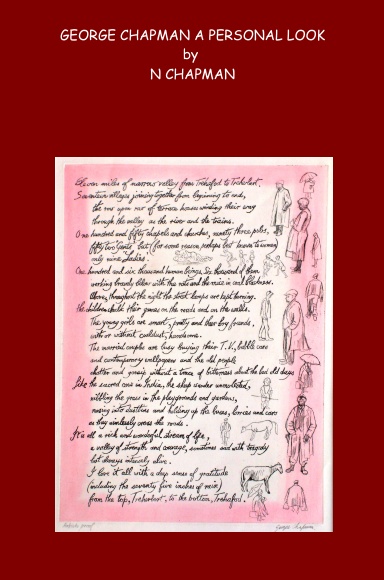 GEORGE CHAPMAN A PERSONAL LOOK
by
N CHAPMAN
Eleven miles of narrow valley from Trehafod to Treherbert.
Seventeen villages joining together from beginning to end,
the row upon row of terrace houses winding their way
through the valley as the river and the trains.
One hundred and fifty chapels and churches, ninety three pubs,
fifty two 'gents' but (for some reason perhaps best known to women)
only nine 'ladies'.
One hundred and six thousand human beings, six thousand of them
working bravely below with the rats and the mice in coal blackness.
Above, throughout the night the street lamps are kept burning.
The children chalk their games on the roads and on the walls.
The young girls are smart, pretty and their boy friends,
with or without handsome.
The married couples are busy buying their T.V., bubble cars
and contemporary wallpapers and the old people
chatter and gossip without a trace of bitterness about the bad old days.
Like the sacred cow in India, the sheep wander unmolested,
nibbling the grass in the playgrounds and gardens,
nosing into dustbins and holding up the buses, lorries and cars
as they aimlessly cross the roads.
It's all a rich and wonderful stream of life,
a valley of strength and courage, sometimes and with tragedy
but always intensely alive.
I love it all with a deep sense of gratitude
(including the seventy five inches of rain)
from the top, Treherbert, to the bottom, Trehafod.
Artists proof
George Chapman